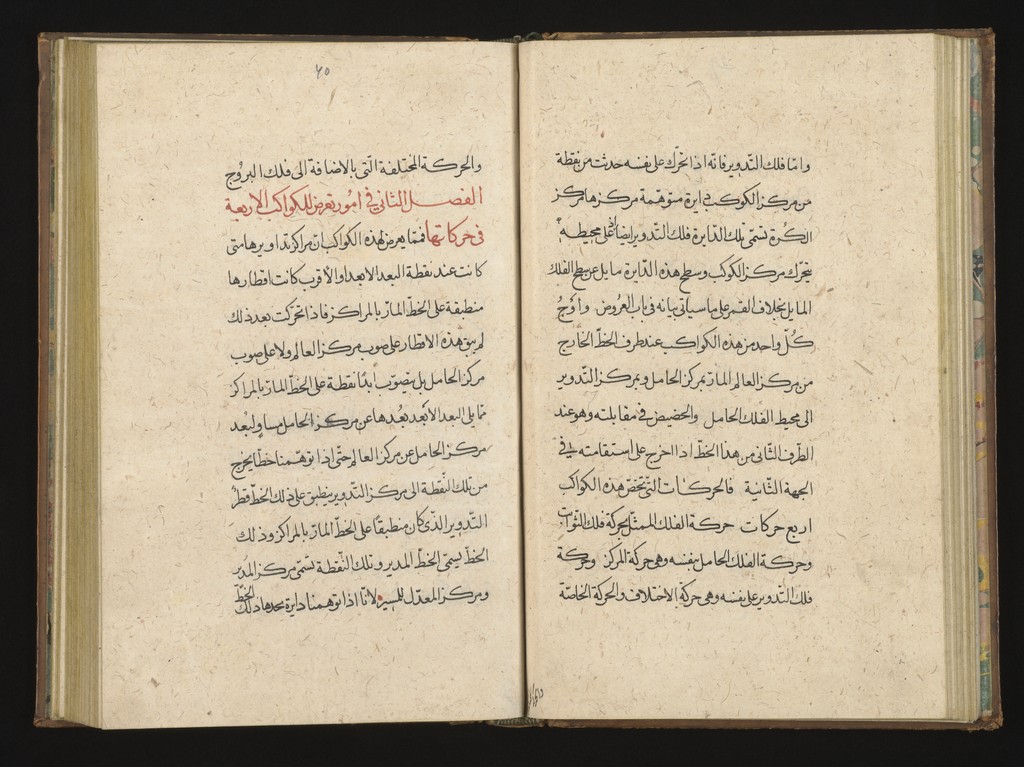 وامّا فلك التدوير فانّه اذا تحرّك على نفسه حدثت من نقطة
من مركز الكوكب دايرة متوهمة مركزها مركز
الكرة تسمّى تلك الدّايرة فلك التّدوير ايضا لان على محيطه
يتحرّك مركز الكوكب وسطح هذه الدّايرة مايل عن سطح الفلك
المايل بخلاف القمر على ما سياتى بيانه فى باب العروض واوجُ
كلّ واحد من هذه الكواكب عند طرف الخطّ الخارج
من مركز العالم المارّ بمركز الحامل وبمركز التّدوير
الى محيط الفلك الحامل والحضيض فى مقابلته وهو عند
الطّرف الثّانى من هذا الخطّ اذا اخرج على استقامته فى
الجهة الثّانية فالحركات التى تخصّ هذه الكواكب
اربع حركات حركة الفلك الممثّل بحركة فلك الثّوابت
وحركة الفلك الحامل بنفسه وهى حركة المركز وحركة
فلك التّدوير على نفسه وهى حركة الاختلاف والحركة الخاصّة
٤٥
والحركة المختلفة الّتى بالاضافة الى فلك البروُج
الفصل الثانى فى امُور تعرض للكواكب الاربعة
فى حركاتها فممّا يعرض لهذه الكواكب ان مراكز تداويرها متى
كانت عند نقطة البعد الابعد او الأقرب كانت اقطارها
منطبقة على الخطّ المارّ بالمراكز فاذا تحرّكت بعد ذلك
لم يبق هذه الاقطار على صوب مركز العالم ولا على صوب
مركز الحامل بل يتصوّب ابدًا نقطة على الخطّ المارّ بالمراكز
ممّا يلى البعد الأبعد بعُدها عن مركز الحامل مساوٍ لبعد
مركز الحامل عن مركز العالم حتّى اذا توهّمنا خطّا يخرج
من تلك النّقطة الى مركز التّدوير ينطبق على ذلك الخطّ قطرُ
التّدوير الّذى كان منطبقًا على الخطّ المارّ بالمراكز وذلك
الخطّ يسمّى الخطّ المدير وتلك النّقطة تسمّى مركز المدير
ومركز المعدّل للمسير ولانّا اذا توهمنا دايرة يحدها ذلك الخطّ